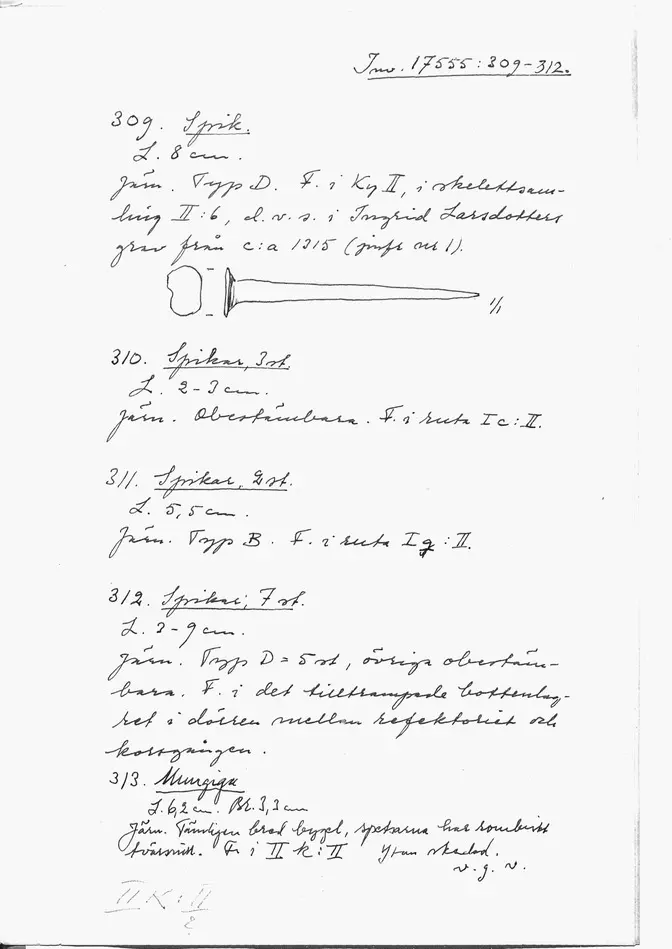 Inv. 17555:309-312.
309. Spik.
L. 8 cm.
Järn. Typ D. F. i Ky II, i skelettsam-
ling II:6, d.v.s. i Ingrid Larsdotters
grav från c:a 1315 (jmfr nr 1).
1/1
310. Spikar, 3 st.
L. 2-3 cm.
Järn. Obestämbara. F. i ruta I c:II.
311. Spikar, 2 st.
L. 5,5 cm.
Järn. Typ B. F. i ruta I g:II.
312. Spikar, 7 st.
L. 3-9 cm.
Järn. Typ D = 5 st, övriga obestäm-
bara. F. i det tilltrampade bottenlag-
ret i dörren mellan refektoriet och
korsgången.
313. Mungiga
L. 6,2 cm. Br. 3,3 cm
Järn. Tämligen bred bygel, spetsarna har rombiskt
tvärsnitt. F. i II k:II Ytan skadad.
v.g.v.
II K:II
?